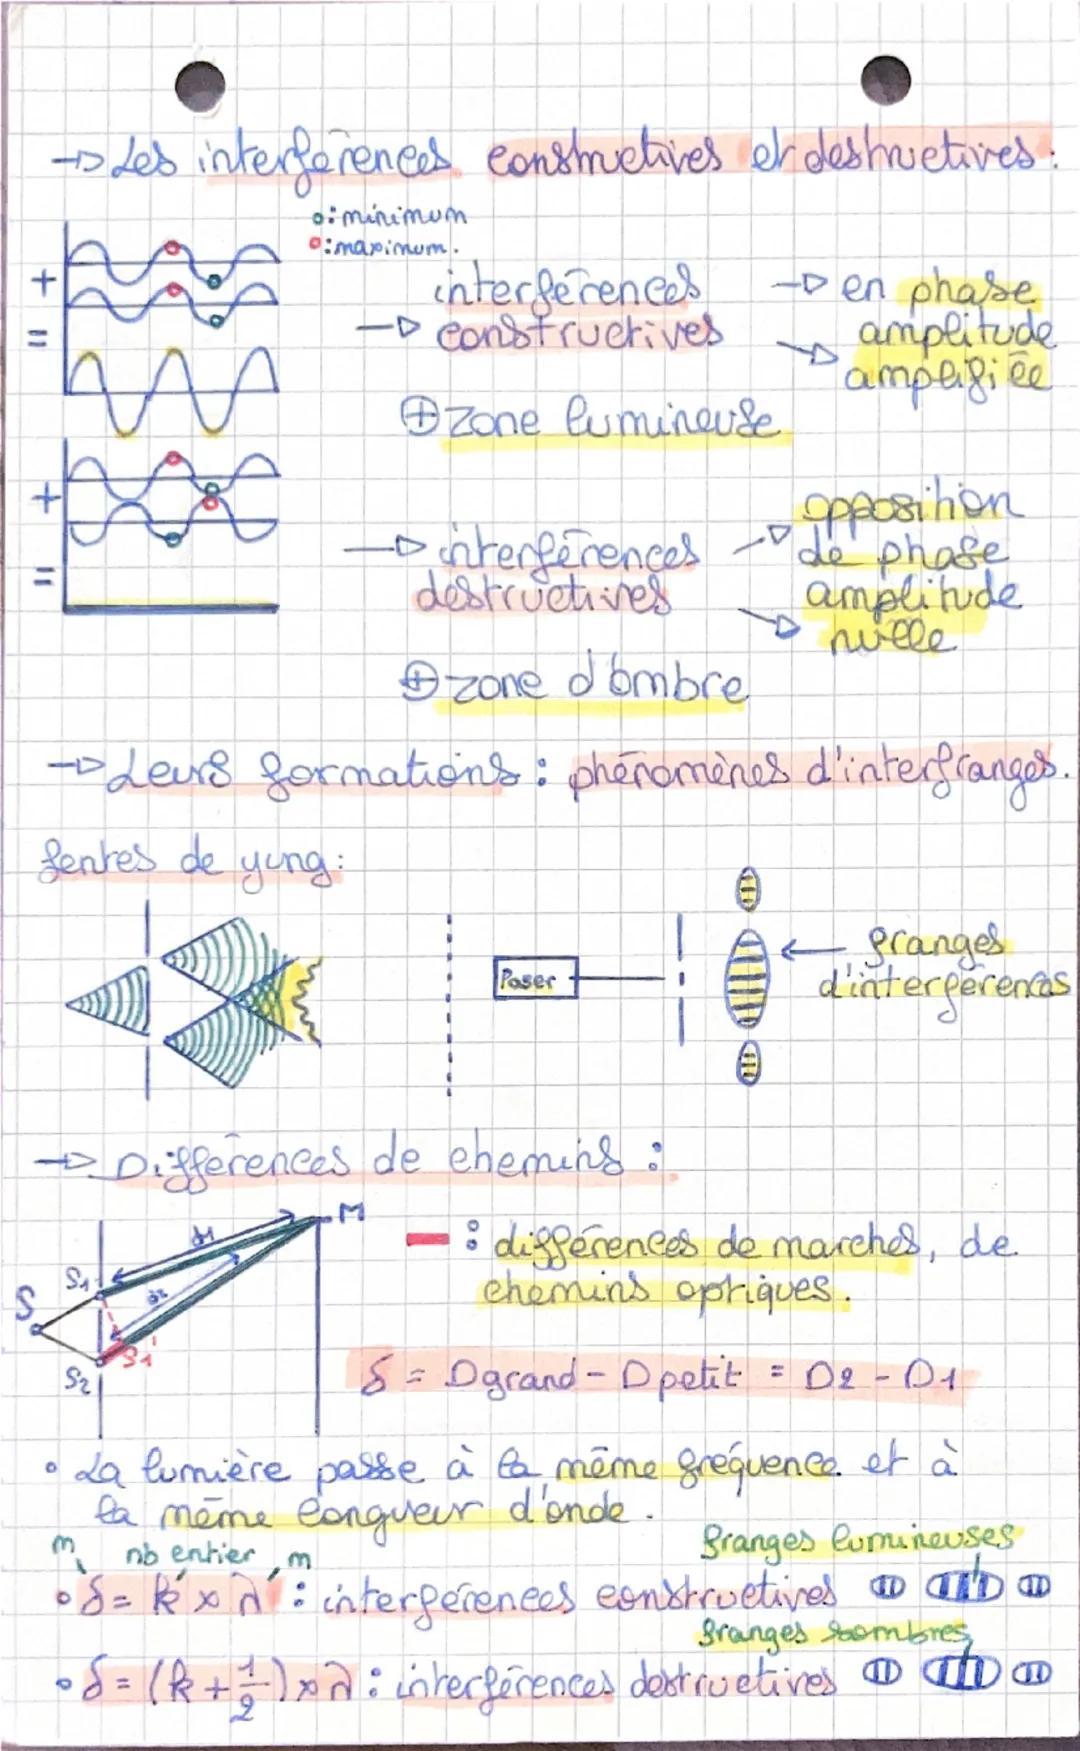 → Les interférences constructives et destructives :
o : minimum
o : maximum.
+
=
interférences
→ constructives
→ en phase
→ amplitude
amplifiée
⊕ zone lumineuse
+
=
→ interférences
destructives
→ opposition
de phase
→ amplitude
nulle
⊕ zone d'ombre
→ Leurs formations : phénomènes d'interfranges.
fentes de yung :
laser
← franges
d'interférences
→ Différences de chemins :
M
d1
S1
d2
S
S1'
S2
— : différences de marches, de
chemins optiques.
δ = Dgrand - Dpetit = D2 - D1
• La lumière passe à la même fréquence et à
la même longueur d'onde.
franges lumineuses
m nb entier m
• δ = k × λ : interférences constructives
franges sombres
• δ = (k + 1/2) × λ : interférences destructives